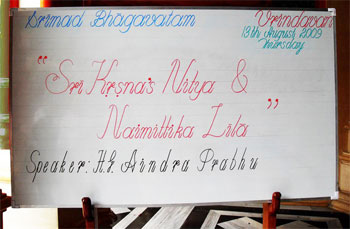 Srimad Bhagavatam Vrindavan
13th August 2009
Thursday
"Sri Kṛṣṇa's Nitya &
Naimittika Lila"
Speaker: H.G. Aindra Prabhu